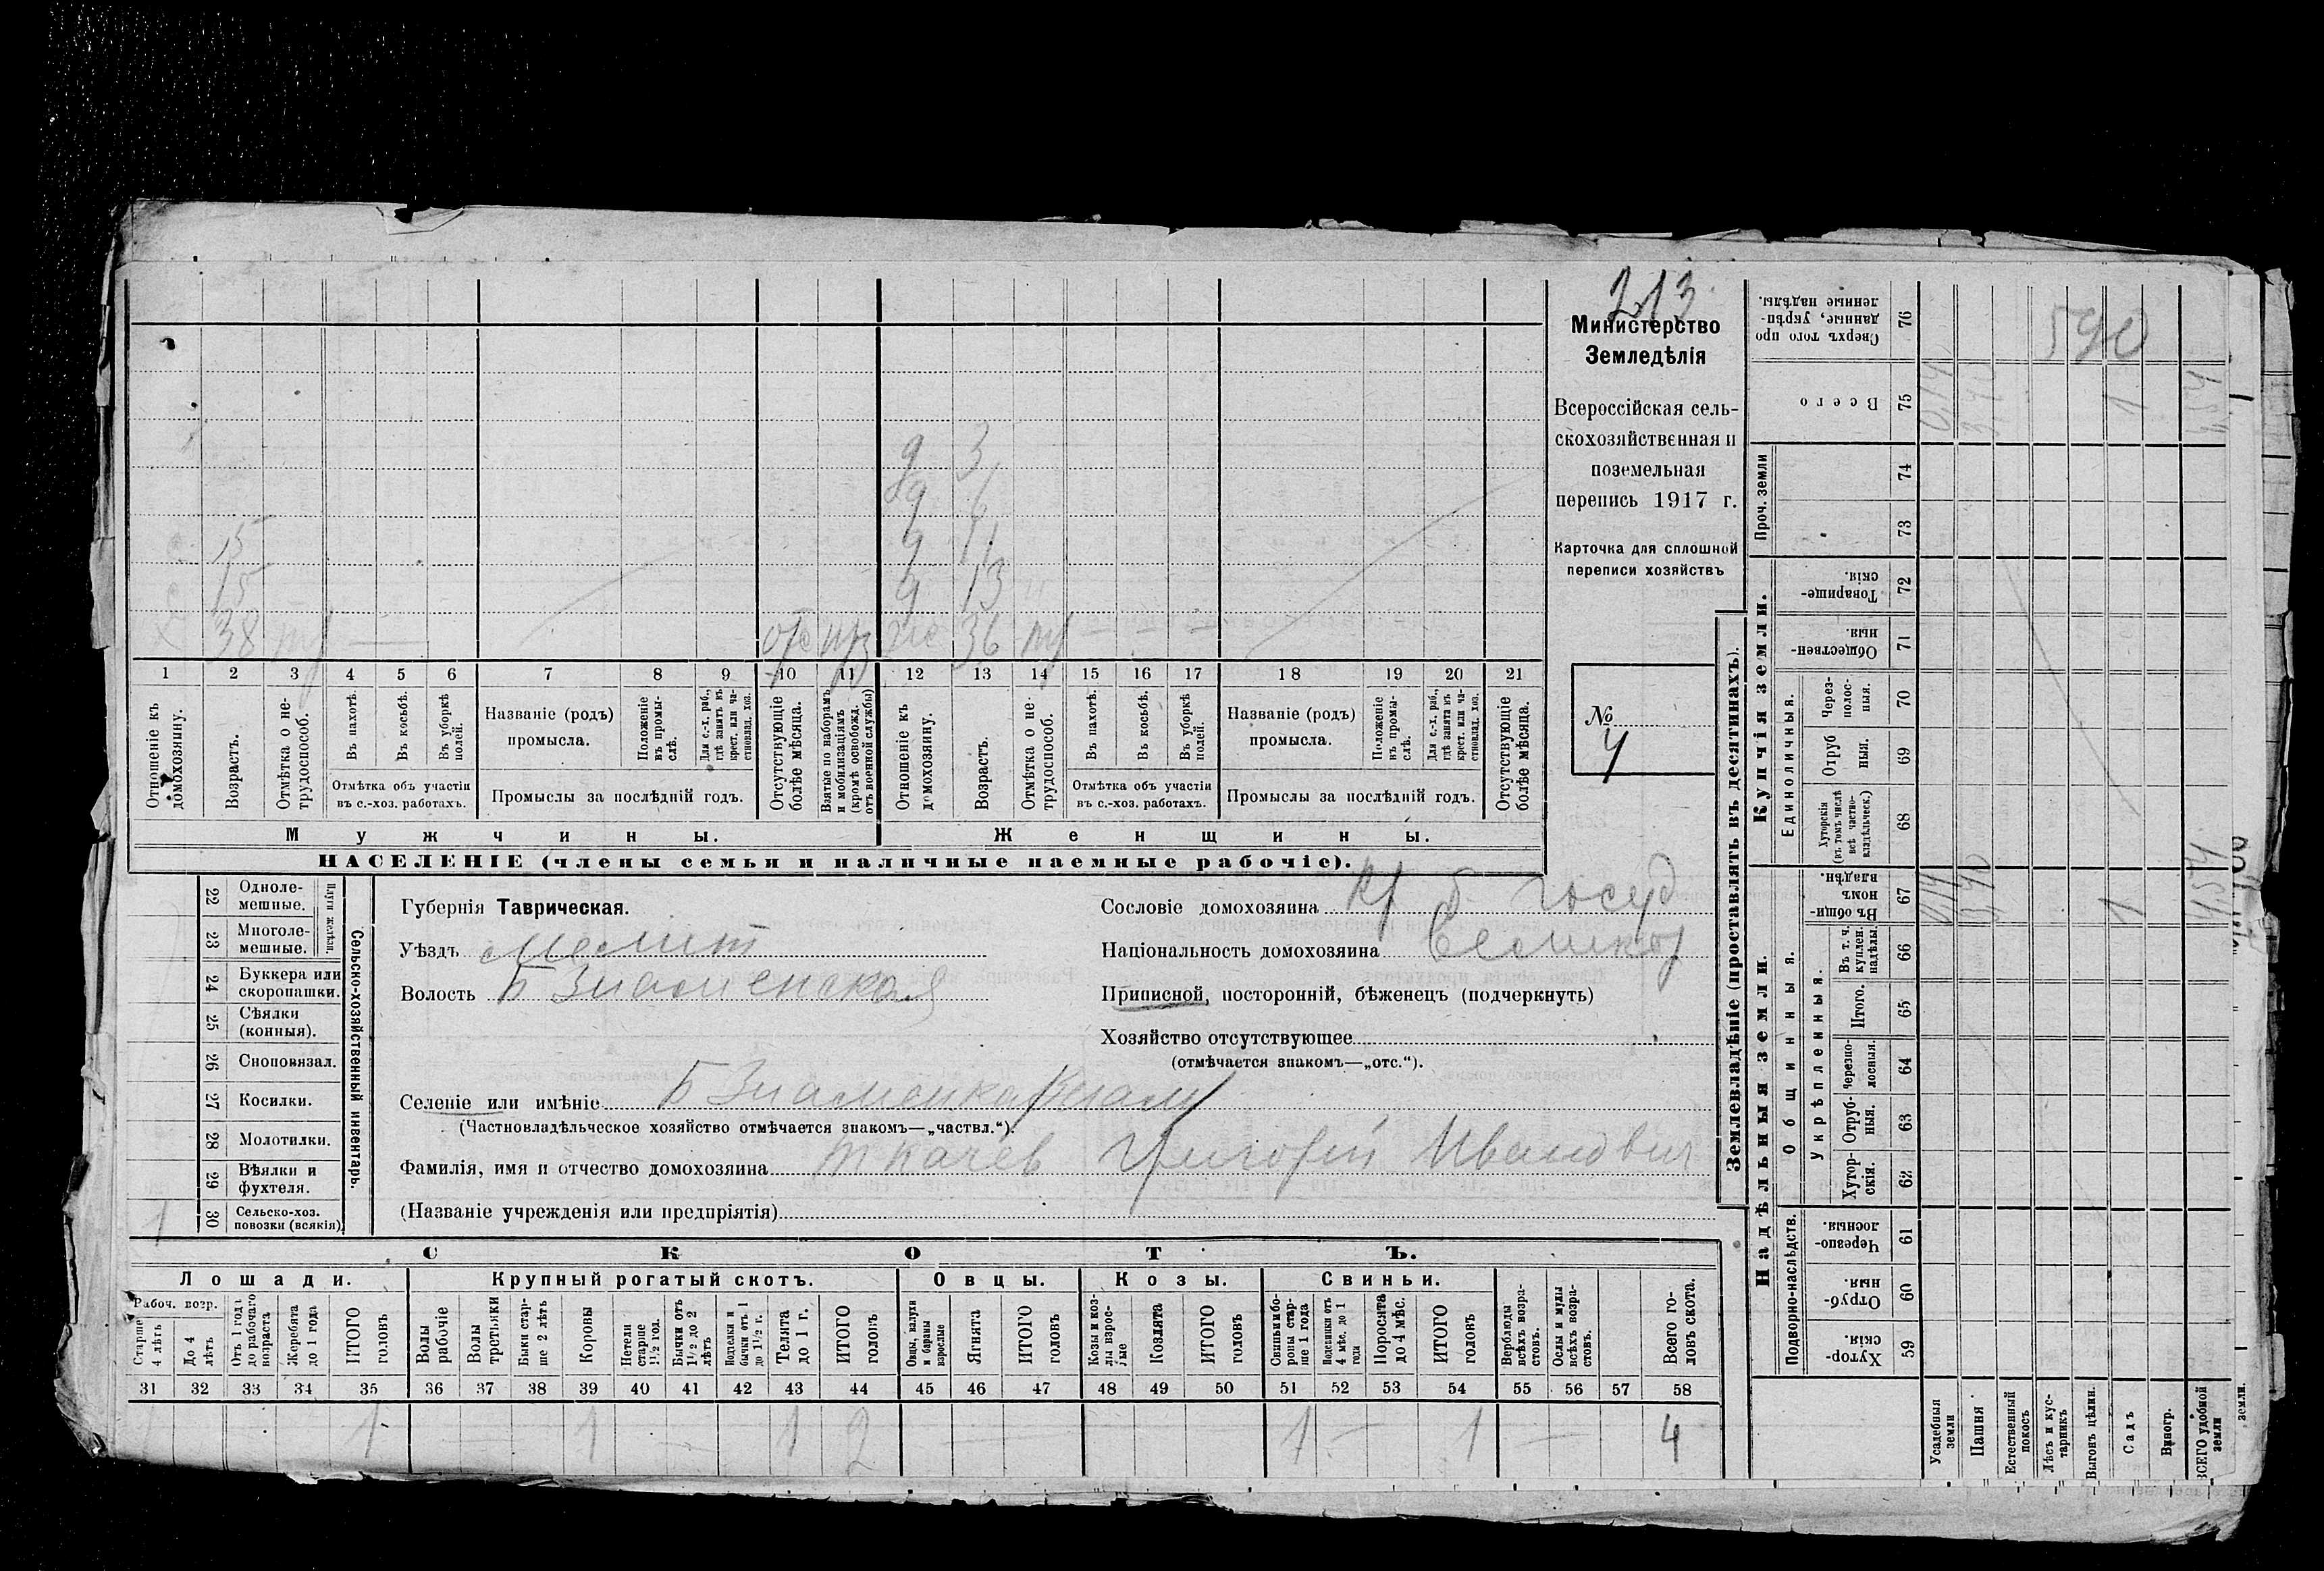 213
Министерство
Земледѣлія
Всероссійская сель-
скохозяйственная и
поземельная
перепись 1917 г.
Карточка для сплошной
переписи хозяйствъ
№
4
д 3
д 6
15 д 11
15 д 13
38 тр 36 тр
1 2 3 4 5 6 7 8 9 10 11 12 13 14 15 16 17 18 19 20 21
Отношеніе къ домохозяину.
Возрастъ.
Отмѣтка о не-трудоспособ.
Въ пахотѣ.
Въ косьбѣ.
Въ уборкѣ полей.
Отмѣтка объ участіи въ с.-хоз. работахъ.
Названіе (родъ) промысла.
Положеніе въ промы-слѣ.
Для с.-х. раб., гдѣ занятъ въ крест. или ча-стновлад. хоз.
Промыслы за послѣдній годъ.
Отсутствующіе болѣе мѣсяца.
Взятые по наборамъ и мобилизаціямъ (кромѣ освобожд. отъ военной службы)
Отношеніе къ домохозяину.
Возрастъ.
Отмѣтка о не-трудоспособ.
Въ пахотѣ.
Въ косьбѣ.
Въ уборкѣ полей.
Отмѣтка объ участіи въ с.-хоз. работахъ.
Названіе (родъ) промысла.
Положеніе въ промы-слѣ.
Для с.-х. раб., гдѣ занята въ крест. или ча-стновлад. хоз.
Промыслы за послѣдній годъ.
Отсутствующіе болѣе мѣсяца.
Мужчины. Женщины.
НАСЕЛЕНІЕ (члены семьи и наличные наемные рабочіе).
22 Одноле-мешные.
23 Многоле-мешные.
Плуги желѣзн.
24 Буккера или скоропашки.
25 Сѣялки (конныя).
26 Сноповязал.
27 Косилки.
28 Молотилки.
29 Вѣялки и фухтеля.
1 30 Сельско-хоз. повозки (всякія)
Сельско-хозяйственный инвентарь.
Губернія Таврическая.
Уѣздъ Мелит
Волость Б Знаменская
Сословіе домохозяина кр б госуд
Національность домохозяина Великор
Приписной, посторонній, бѣженецъ (подчеркнуть)
Хозяйство отсутствующее
(отмѣчается знакомъ—„отс.“).
Селеніе или имѣніе Б Знаменка
(Частновладѣльческое хозяйство отмѣчается знакомъ—„частвл.“).
Фамилія, имя и отчество домохозяина Ткачев Григорій Иванович
(Названіе учрежденія или предпріятія)
СКОТЪ.
Лошади. Крупный рогатый скотъ. Овцы. Козы. Свиньи.
Рабоч. возр.
Старше 4 лѣтъ
До 4 лѣтъ
Отъ 1 года до рабочаго возраста
Жеребята до 1 года
ИТОГО головъ
Волы рабочіе
Волы третьяки
Быки стар-ше 2 лѣтъ
Коровы
Нетели старше 1½ год.
Бычки отъ 1½ до 2 лѣтъ
Подтелки и бычки отъ 1 до 1½ г.
Телята до 1 г.
ИТОГО головъ
Овцы, валухи и бараны взрослые
Ягнята
ИТОГО головъ
Козы и коз-лы взрос-лые
Козлята
ИТОГО головъ
Свиньи и бо-ровы стар-ше 1 года
Подсвинки отъ 4 мѣс. до 1 года
Поросята до 4 мѣс.
ИТОГО головъ
Верблюды всѣхъ возра-стовъ.
Ослы и мулы всѣхъ возра-стовъ.
Всего го-ловъ скота.
31 32 33 34 35 36 37 38 39 40 41 42 43 44 45 46 47 48 49 50 51 52 53 54 55 56 57 58
1 — — — 1 — — — 1 — 1 2 — — 1 — 1 — 4
Землевладѣніе (проставлять въ десятинахъ).
Надѣльныя земли. Купчія земли.
Проч. земли
Подворно-наслѣдств.
Общинныя.
Укрѣпленныя.
Единоличныя.
Хутор-скія. 59
Отруб-ныя. 60
Черезпо-лосныя. 61
Хутор-скія. 62
Отруб-ныя. 63
Черезпо-лосныя. 64
Итого. 65
Въ т. ч. куплен. надѣлы. 66
Въ общин-номъ владѣн. 67
Хуторскія (въ томъ числѣ всѣ частно-владѣльческ.) 68
Отруб ныя. 69
Через-полос-ныя. 70
Обществен-ныя. 71
Товарище-скія. 72
73
74
Всего 75
Сверхъ того про данные, укрѣп-ленные надѣлы. 76
Усадебныя земли 0,14 0,14
Пашня 3,40 3,40
Естественный покосъ
Лѣсъ и кус-тарникъ
Выгонъ цѣлин.
Садъ 1 1
Виногр.
ВСЕГО удобной земли 4,54 4,54
земли.
590